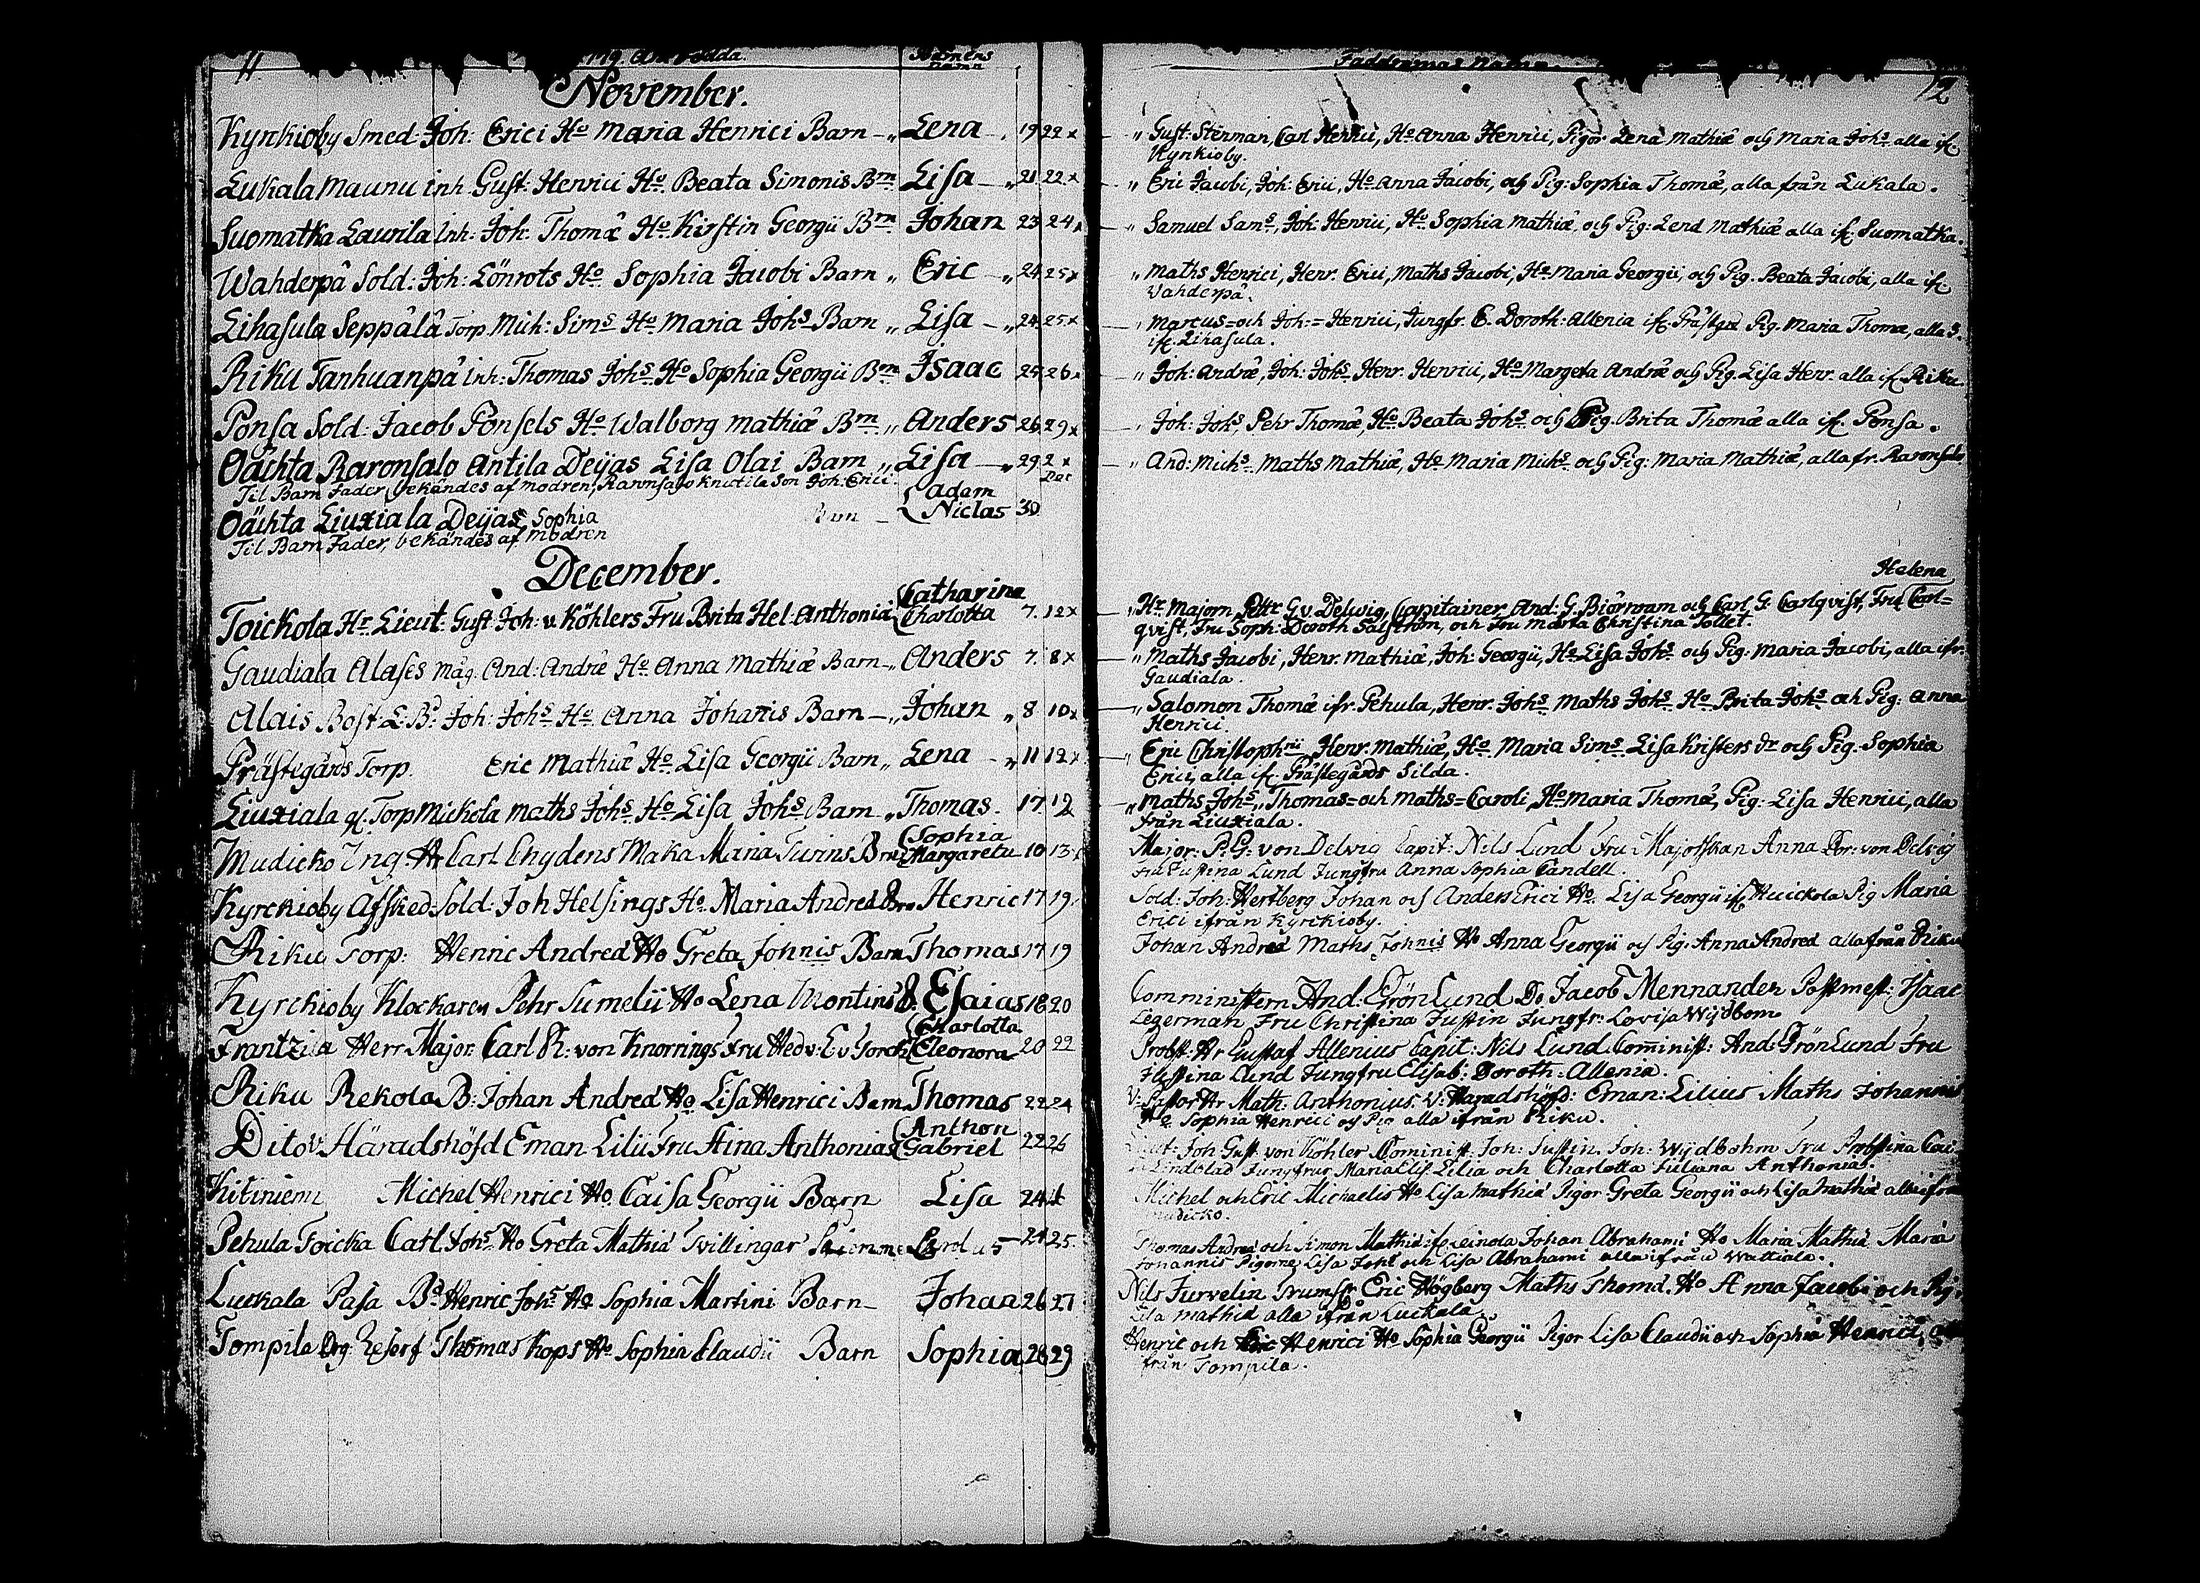 11
Födda.
Barnens
namn
November.
Kyrkioby Smed. Joh: Erici Ho Maria Henrici Barn „ Lena 19 22 x
Lukala Maunu Inh: Gust: Henrici Ho Beata Simonis Brn Lisa „ 21 22 x
Suomatka Laurila Inh: Joh: Thomæ Ho Kirstin Georgii Brn Johan 23 24
Wahderpä Sold: Joh: Lönrots Ho Sophia Jacobi Barn „ Eric „ 24 25 x
Lihasula Seppälä Torp. Mich: Sims Ho Maria Johs Barn „ Lisa „ 24 25 x
Riku Tanhuanpä Inh: Thomas Johs Ho Sophia Georgii Brn Isaac 25 26
Ponsa Sold: Jacob Ponsels Ho Walborg Mathiæ Brn „ Anders 26 29 x
Oächta Raronsalo Antila Deijas Lisa Olai Barn „ Lisa „ 29 2 x
Til Barn Fader bekändes af modren, Son Joh: Erici Dec
Oächta Liuxiala Deijas Sophia Barn Adam Niclas 30
Til Barn Fader, bekändes af modren
December.
Toickola Hr Lieut: Gust: Joh: v. Köhlers Fru Brita Hel: Anthonia Catharina Charlotta 7. 12 x
Gaudiala Alases Måg: And: Andræ Ho Anna Mathiæ Barn „ Anders 7. 8 x
Alais Bost. L: Bd: Joh: Johs Ho Anna Johanis Barn „ Johan „ 8 10 x
Prästegårds Torp. Eric Mathiæ Ho Lisa Georgii Barn „ Lena „ 11 12 x
Liuxiala gl. Torp Mickola Maths Johs Ho Lisa Johs Barn „ Thomas. 17 19
Mudicko Ing. Hr Carl Chydens Maka Maria Turins Brn Sophia Margareta 10 13
Kyrckioby Afsked: Sold: Joh Helsings Ho Maria Andreæ Brn Henric 17 19
Riku Torp: Henric Andreæ Ho Greta Johnis Barn Thomas 17 19
Kyrckioby Klockaren Pehr Sumelii Ho Lena Montins B. Esaias 18 20
Frantzila Herr Major Carl R: von Knorrings Fru Hedv: E v Charlotta Eleonora 20 22
Riku Rekola B: Johan Andreæ Ho Lisa Henrici Barn Thomas 22 24
Dito V Häradshöfd Eman Lilii Fru Stina Anthonias Anthon Gabriel 22 26
Kitiniemi Michel Henrici Ho Caisa Georgii Barn Lisa 24
Pehula Toicka Carl Johs Ho Greta Mathiæ Tvillingar 24 25
Luckala Pasa Bd Henric Johs Ho Sophia Martini Barn Johan 26 27
Tompila Drg: Reserf Thomas Kops Ho Sophia Claudii Barn Sophia 28 29
Faddrarnas Namn
12
„ Gust: Stenman, Carl Henrici, Ho Anna Henrici, Pigor Lena Mathiæ och Maria Johs alla ifr.
Kyrkioby.
„ Eric Jacobi, Joh: Erici, Ho Anna Jacobi, och Pig: Sophia Thomæ, alla från Lukala.
„ Samuel Sams, Joh: Henrici, Ho Sophia Mathiæ, och Pig: Lena Mathiæ alla ifr. Suomatka.
„ Maths Henrici, Henr. Erici, Maths Jacobi, Ho Maria Georgii, och Pig. Beata Jacobi, alla ifr.
Wahderpä.
„ Marcus= och Joh:= Henrici, Jungfr. E. Doroth: Allenia ifr. Prästgrd Pig. Maria Thomæ, alla
ifr. Lihasula.
„ Joh: Andræ, Joh: Johs Henr. Henrici, Ho Margeta Andræ och Pig. Lisa Henr. alla ifr. Riku.
„ Joh: Johs, Pehr Thomæ, Ho Beata Johs och Pig. Brita Thomæ alla ifr. Ponsa.
„ And: Michs, Maths Mathiæ, Ho Maria Michs och Pig: Maria Mathiæ, alla fr. Raronsalo
Helena
„ Hr Majorn Petter G. v. Delwig, Capitainer And: G. Biörnram och Carl G: Carlqvist, Fru Carl=
qvist, Fru Soph: Doroth Salström, och Fru Märta Christina Tollet.
„ Maths Jacobi, Henr. Mathiæ, Joh: Georgii, Ho Lisa Johs och Pig: Maria Jacobi, alla ifr.
Gaudiala.
„ Salomon Thomæ ifr. Pehula, Henr. Johs Maths Johs Ho Brita Johs och Pig: Anna
Henrici.
„ Eric Christophrii Henr. Mathiæ, Ho Maria Sims Lisa Kristers dr och Pig: Sophia
Erici, alla ifr. Prästegårds Silda.
„ Maths Johs, Thomas= och Maths= Caroli, Ho Maria Thomæ, Pig: Lisa Henrici, alla
från Liuxiala.
Major: P: G: von Delvig Capit: Nils Lund Fru Majorskan Anna Dor: von Delvig
Fru Lund Jungfru Anna Sophia Candell.
Sold: Joh: Hertberg Johan och Anders Erici Ho Lisa Georgii ifr Pig Maria
Erici ifrån Kyrckioby.
Johan Andreæ Maths Johnis Ho Anna Georgii och Pig. Anna Andreæ alla från Riku
Comministern And: Grönlund Do Jacob Mennander Postmest: Isaac
Legerman Fru Christina Justin Jungfr: Lovisa Wijdbom
Probst. Hr Gustaf Allenius Capit: Nils Lund Cominist: And: Grönlund Fru
Lund Jungfru Elisab: Doroth: Allenia.
V: Pastor Hr Math: Anthonius V: Haradshöfd: Eman: Lilius Maths Johannis
Ho Sophia Henrici och Pig alla ifrån Riku.
Joh Gust: von Köhler Cominist: Joh: Justin. Joh: Wijdbohm Fru
Lindblad Jungfrur Maria Elis. Lilia och Charlotta Juliana Anthonia.
Michel och Eric Michaelis Ho Lisa Mathiæ Pigor Greta Georgii och Lisa Mathiæ alla ifrån
Mudicko.
Thomas Andreæ och Simon Mathiæ Johan Abrahami Ho Maria Mathiæ Maria
Johannis Pigorne Lisa Johs och Lisa Abrahami alla ifrån Wattiala.
Nils Furvelin Trumsl: Eric Högberg Maths Thomæ Ho Anna Jacobi och Pig
Lisa Mathiæ alla ifrån Luckala
Henric och Eric Henrici Ho Sophia Georgii Pigor Lisa Claudii och Sophia Henrici
från Tompila.